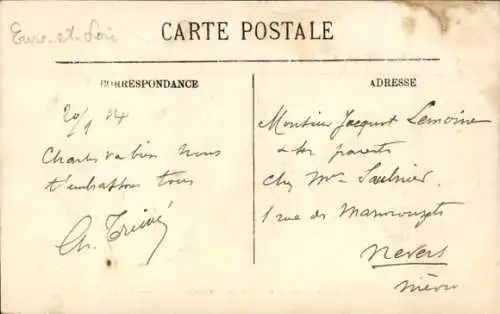 Eure-et-Loir
CARTE POSTALE
CORRESPONDANCE
ADRESSE
20/9 14
Charles va bien nous
t'embrassons tous
Ch.
Monsieur Jacques Lemoine
& ses parents
chez Mr Saulnier
1 rue de
Nevers
Nièvre